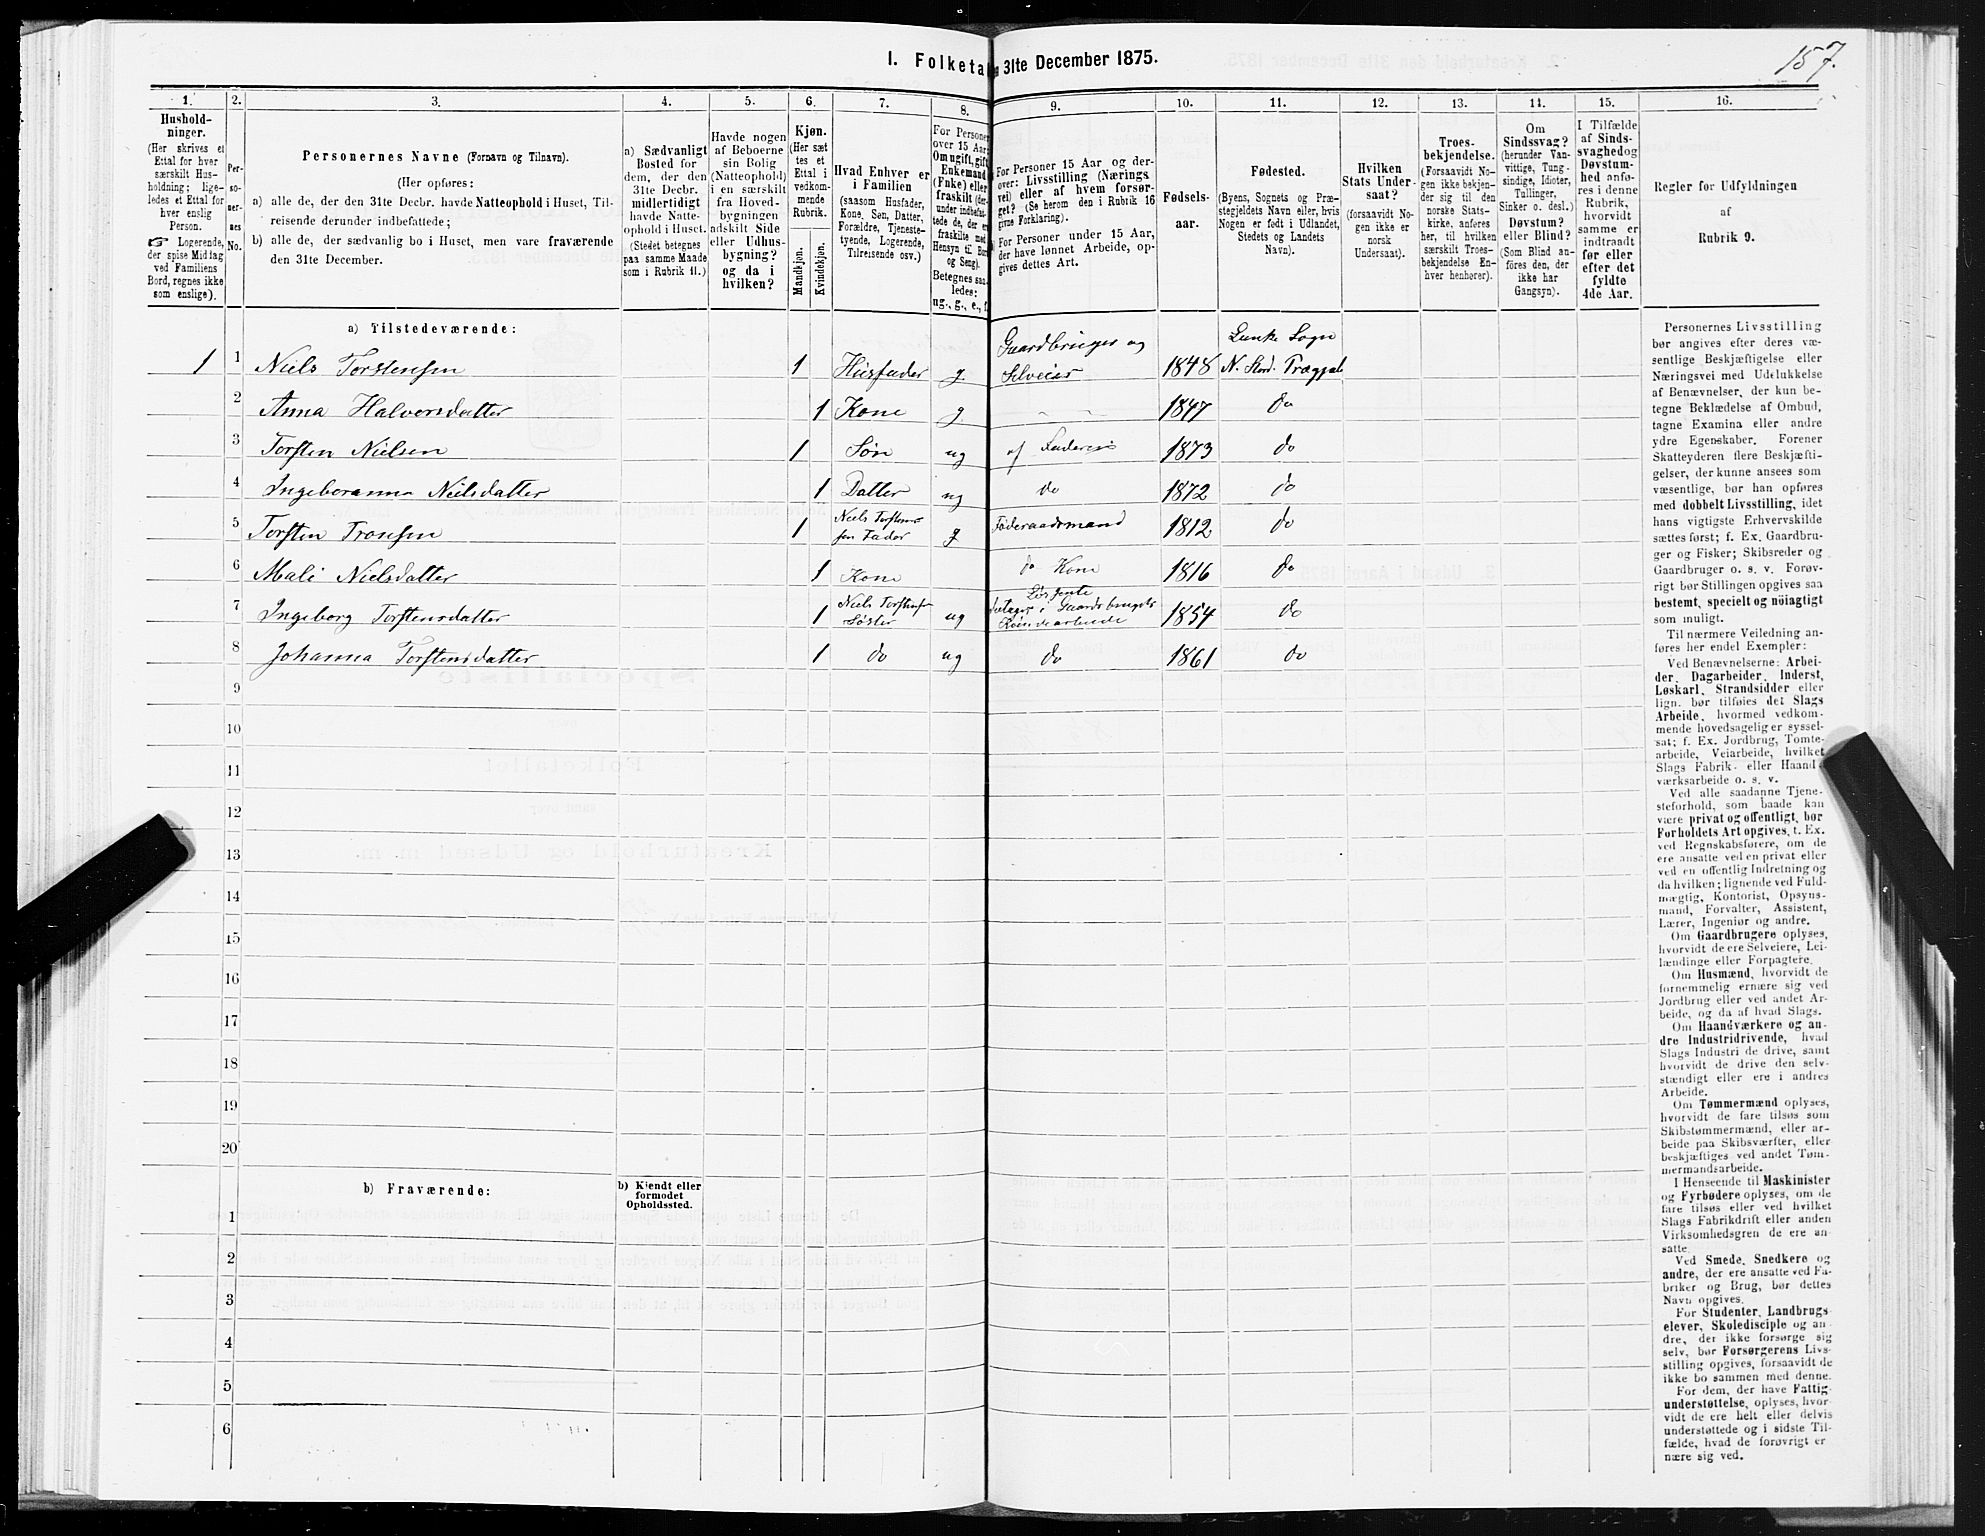 157.
I. Folketa
31te December 1875.
1. 2. 3. 4. 5. 6. 7. 8. 9. 10. 11. 12. 13. 14. 15. 16.
Hushold-
ninger.
(Her skrives et
Ettal for hver
særskilt Hus-
holdning; lige-
ledes et Ettal for
hver enslig
Person.
☞ Logerende,
der spise Middag
ved Familiens
Bord, regnes ikke
som enslige).
Per-
so-
ner-
nes
No.
Personernes Navne (Fornavn og Tilnavn).
(Her opføres:
a) alle de, der den 31te Decbr. havde Natteophold i Huset, Til-
reisende derunder indbefattede;
b) alle de, der sædvanlig bo i Huset, men vare fraværende
den 31te December.
a) Sædvanligt
Bosted for
dem, der den
31te Decbr.
midlertidigt
havde Natte-
ophold i Huset.
(Stedet betegnes
paa samme Maade
som i Rubrik 11.)
Havde nogen
af Beboerne
sin Bolig
(Natteophold)
i en særskilt
fra Hoved-
bygningen
adskilt Side
eller Udhus-
bygning?
og da i
hvilken?
Kjøn.
(Her sæt
tes et
Ettal i
vedkom-
mende
Rubrik.
Mandkjøn.
Kvindekjøn.
Hvad Enhver er
i Familien
(saasom Husfader,
Kone, Søn, Datter,
Forældre, Tjeneste-
tyende, Logerende,
Tilreisende osv.)
For Personer
over 15 Aar:
Om ugift, gift,
Enkemand
(Enke) eller
fraskilt (der-
under indbefat-
tede de, der er
fraskilte med
Hensyn til Bord
og Seng).
Betegnes saa-
ledes:
ug., g., e., f.
For Personer 15 Aar og der-
over: Livsstilling (Nærings
vei) eller af hvem forsør-
get? (Se herom den i Rubrik 16
givne Forklaring).
For Personer under 15 Aar,
der have lønnet Arbeide, op-
gives dettes Art.
Fødsels-
aar.
Fødested.
(Byens, Sognets og Præ-
stegjeldets Navn eller, hvis
Nogen er født i Udlandet,
Stedets og Landets
Navn).
Hvilken
Stats Under-
saat?
(forsaavidt No-
gen ikke er
norsk
Undersaat).
Troes-
bekjendelse.
(Forsaavidt No-
gen ikke bekjen-
der sig til den
norske Stats-
kirke, anføres
her, til hvilken
særskilt Troes-
bekjendelse En-
hver henhører).
Om
Sindssvag?
(herunder Van-
vittige, Tung-
sindige, Idioter,
Tullinger,
Sinker o. desl.)
Døvstum?
eller Blind?
(Som Blind an-
føres den, der
ikke har
Gangsyn).
I Tilfælde
af Sinds-
svaghed og
Døvstum-
hed anfø-
res i denne
Rubrik,
hvorvidt
samme er
indtraadt
før eller
efter det
fyldte
4de Aar.
Regler for Udfyldningen
af
Rubrik 9.
a) Tilstedeværende:
1 1 Niels Torstensen 1 Husfader g. Gaardbruger og Selveier 1848 Sogn N. Stord.
2 Anna Halvorsdatter 1 Kone g. " " 1847 do
3 Torsten Nielsen 1 Søn ug af Faderen 1873 do
4 Ingeboranna Nielsdatter 1 Datter ug do 1872 do
5 Torsten Tronsen 1 Niels Torstensen Fader g Føderaadsmand 1812 do
6 Mali Nielsdatter 1 Kone do Kone 1816 do
7 Ingeborg Torstensdatter 1 Niels Torstens Søster ug deltager i Gaardsbrugets 1854 do
8 Johanna Torstensdatter 1 do ug do 1861 do
9
10
11
12
13
14
15
16
17
18
19
20
b) Fraværende:
b) Kjendt eller
formodet
Opholdssted.
1
2
3
4
5
6
Personernes Livsstilling
bør angives efter deres væ-
sentlige Beskjæftigelse eller
Næringsvei med Udelukkelse
af Benævnelser, der kun be-
tegne Beklædelse af Ombud,
tagne Examina eller andre
ydre Egenskaber. Forener
Skatteyderen flere Beskjæfti-
gelser, der kunne ansees som
væsentlige, bør han opføres
med dobbelt Livsstilling, idet
hans vigtigste Erhvervskilde
sættes først; f. Ex. Gaardbru-
ger og Fisker; Skibsreder og
Gaardbruger o. s. v. Forøv-
rigt bør Stillingen opgives saa
bestemt, specielt og nöiagtigt
som muligt.
Til nærmere Veiledning an-
føres her endel Exempler:
Ved Benævnelserne: Arbei-
der, Dagarbeider, Inderst,
Løskarl, Strandsidder eller
lign. bør tilføies det Slags
Arbeide, hvormed vedkom-
mende hovedsagelig er syssel-
sat; f. Ex. Jordbrug, Tomte-
arbeide, Veiarbeide, hvilket
Slags Fabrik- eller Haand-
værksarbeide o. s. v.
Ved alle saadanne Tjene-
steforhold, som baade kan
være privat og offentligt, bør
Forholdets Art opgives, t. Ex.
ved Regnskabsførere, om de
ere ansatte ved en privat eller
ved en offentlig Indretning og
da hvilken; lignende ved Fuld-
mægtig, Kontorist, Opsyns-
mand, Forvalter, Assistent,
Lærer, Ingeniør og andre.
Om Gaardbrugere oplyses,
hvorvidt de ere Selveiere, Lei-
lændinge eller Forpagtere.
Om Husmænd, hvorvidt de
fornemmelig ernære sig ved
Jordbrug eller ved andet Ar-
beide, og da af hvad Slags.
Om Haandværkere og an-
dre Industridrivende, hvad
Slags Industri de drive, samt
hvorvidt de drive den selv-
stændigt eller ere i andres
Arbeide.
Om Tømmermænd oplyses,
hvorvidt de fare tilsøs som
Skibstømmermænd, eller ar-
beide paa Skibsværfter, eller
beskjæftiges ved andet Tøm-
mermandsarbeide.
I Henseende til Maskinister
og Fyrbødere oplyses, om de
fare tilsøs eller ved hvilket
Slags Fabrikdrift eller anden
Virksomhedsgren de ere an-
satte.
Ved Smede, Snedkere og
andre, der ere ansatte ved Fa-
briker og Brug, bør dettes
Navn opgives.
For Studenter, Landbrugs-
elever, Skoledisciple og an-
dre, der ikke forsørge sig
selv, bør Forsørgerens Livs-
stilling opgives, forsaavidt de
ikke bo sammen med denne.
For dem, der have Fattig-
understøttelse, oplyses, hvor-
vidt de ere helt eller delvis
understøttede og i sidste Til-
fælde, hvad de forøvrigt er
nære sig ved.